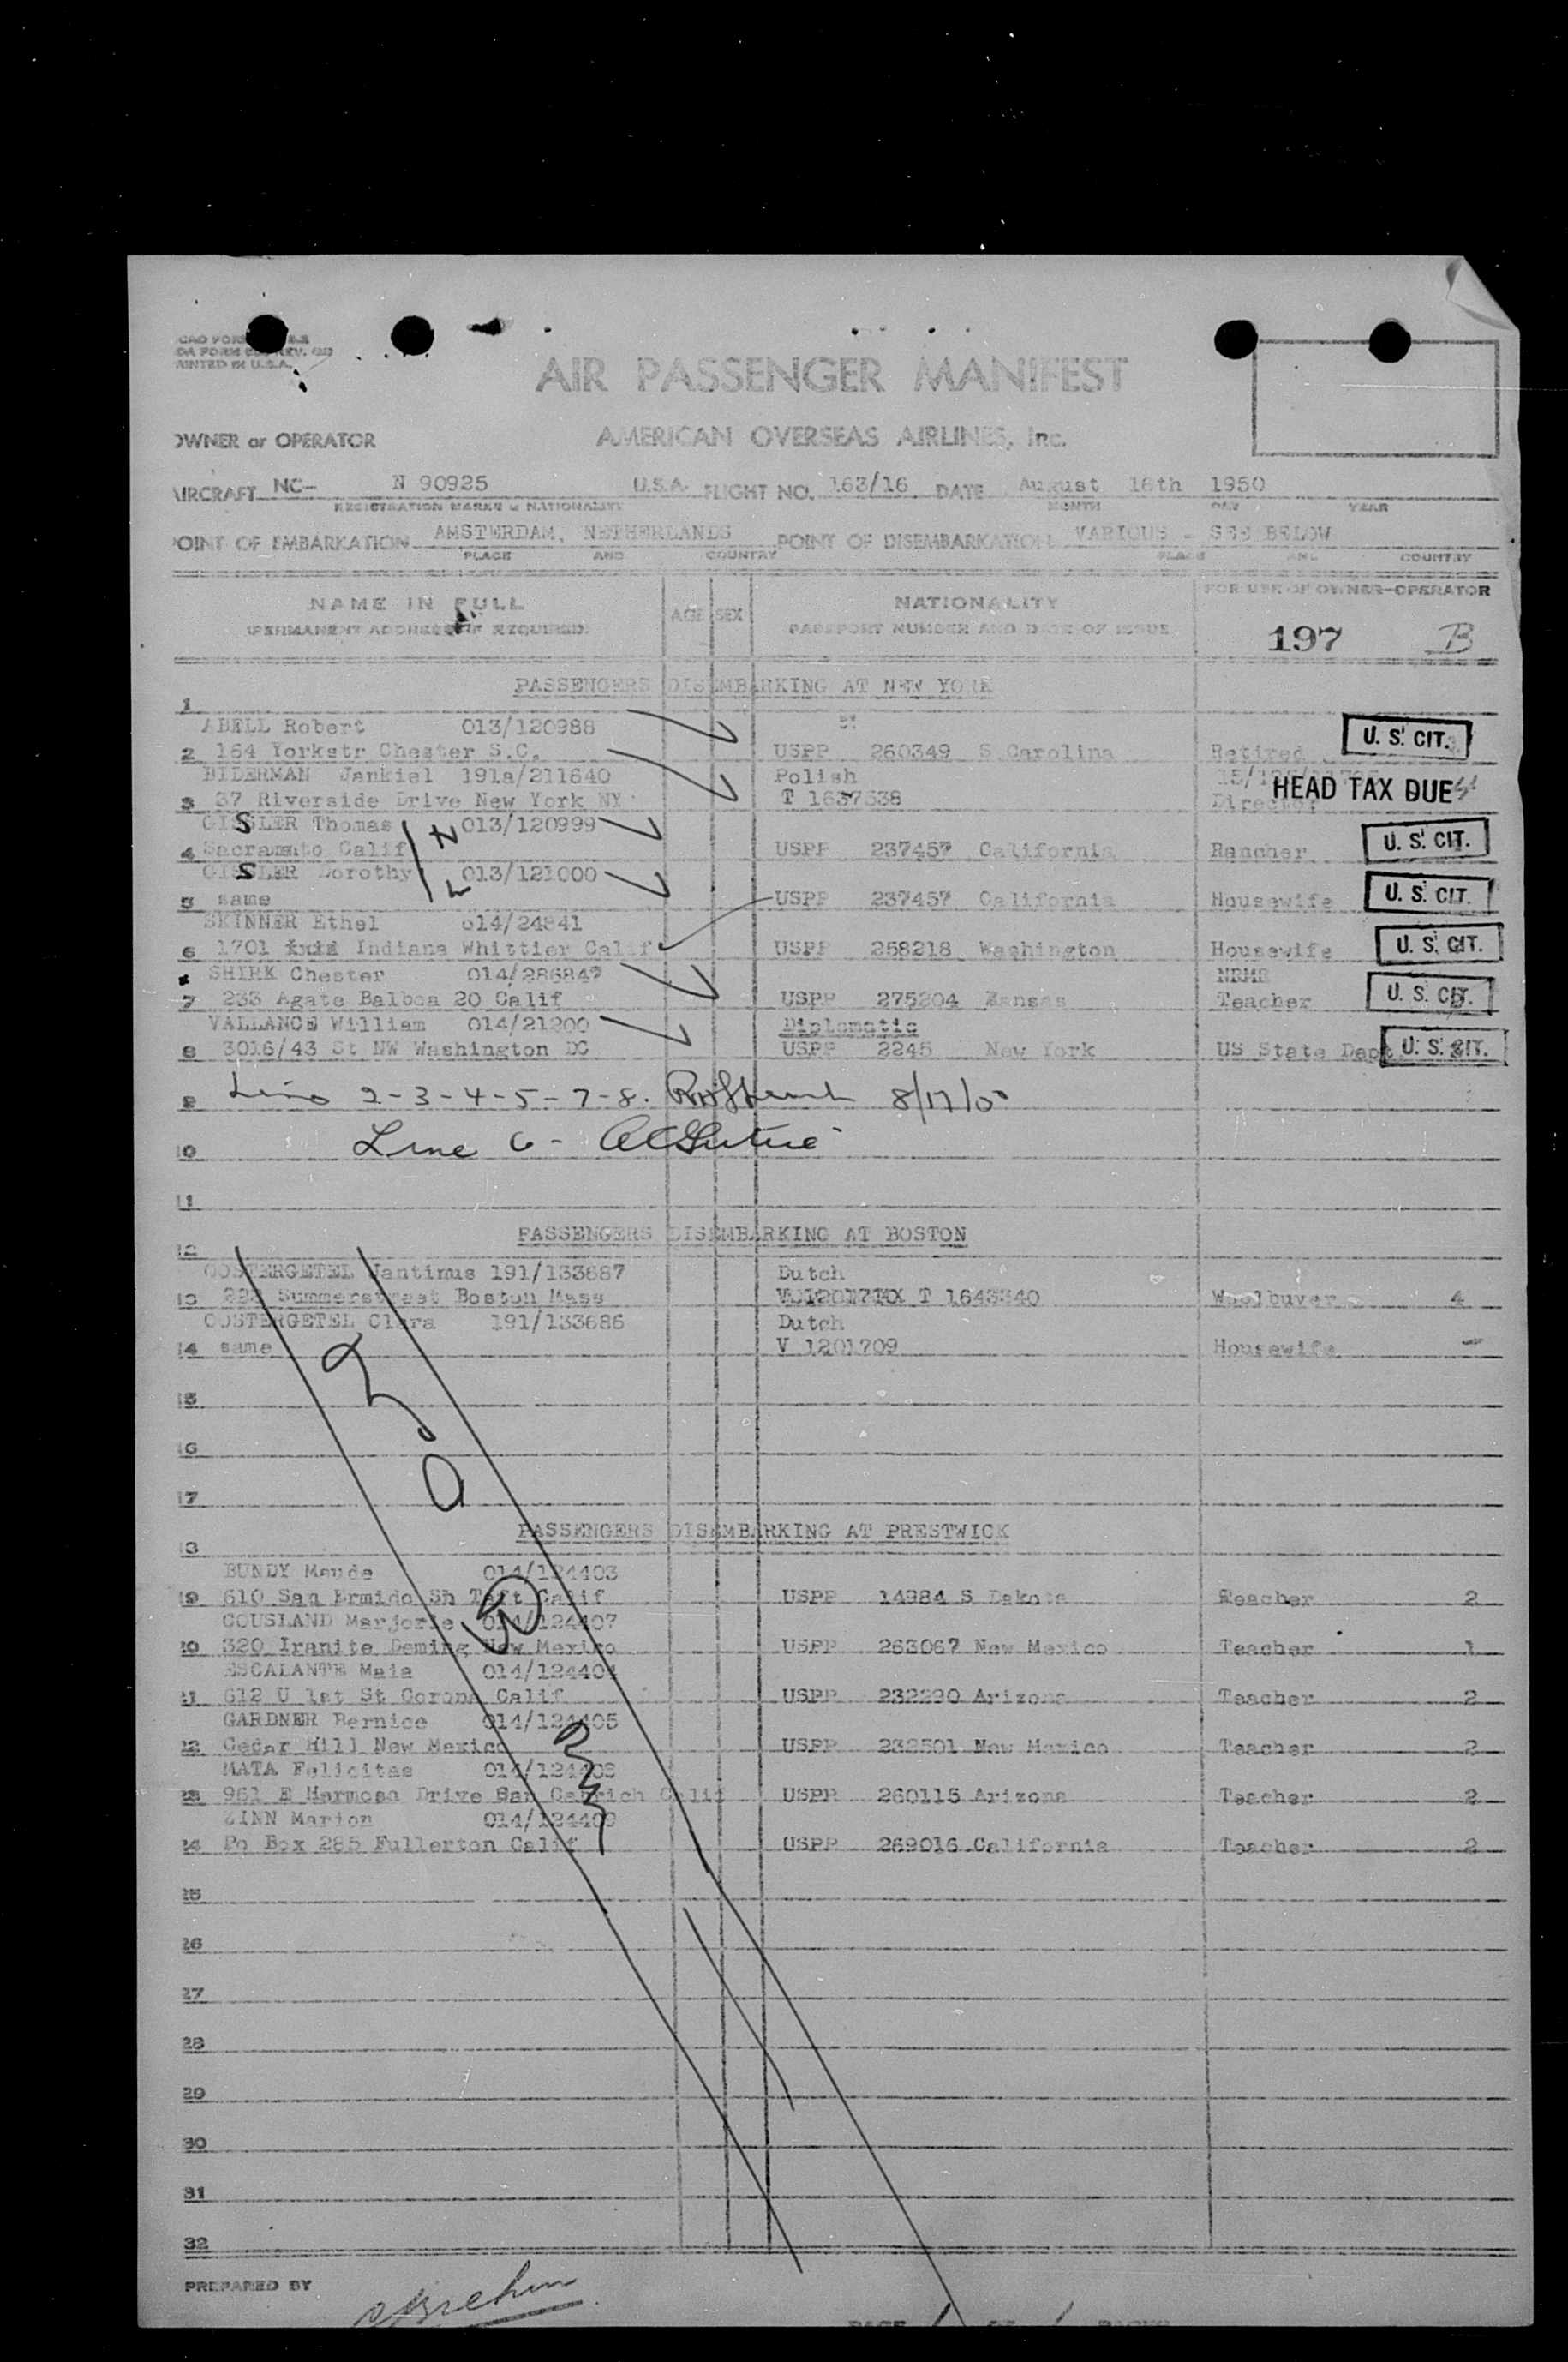 PRINTED IN U.S.A.
AIR PASSENGER MANIFEST
OWNER or OPERATOR AMERICAN OVERSEAS AIRLINES, Inc.
AIRCRAFT NC- N 90925 U.S.A. FLIGHT NO. 163/16 DATE August 16th 1950
REGISTRATION MARKS & NATIONALITY MONTH DAY YEAR
POINT OF EMBARKATION AMSTERDAM, NETHERLANDS POINT OF DISEMBARKATION VARIOUS - SEE BELOW
PLACE AND COUNTRY PLACE AND COUNTRY
NAME IN FULL AGE SEX NATIONALITY FOR USE OF OWNER-OPERATOR
(PERMANENT ADDRESS IF REQUIRED) PASSPORT NUMBER AND DATE OF ISSUE 197 B
PASSENGERS DISEMBARKING AT NEW YORK
1
ABELL Robert 013/120988
2 164 Yorkstr Chester S.C. USPP 260349 S.Carolina Retired U.S. CIT.
BIDERMAN Jankiel 191a/211640 Polish
3 37 Riverside Drive New York NY T 1637538 Director HEAD TAX DUE
GISSLER Thomas 013/120999
4 Sacramento Calif USPP 237457 California Rancher U.S. CIT.
GISSLER Dorothy 013/121000
5 same USPP 237457 California Housewife U.S. CIT.
SKINNER Ethel 014/24841
6 1701 Indiana Whittier Calif USPP 258218 Washington Housewife U.S. CIT.
SHIRK Chester 014/286847 NRMR
7 233 Agate Balboa 20 Calif USPP 275204 Kansas Teacher U.S. CIT.
VALLANCE William 014/21200 Diplomatic
8 3016/43 St NW Washington DC USPP 2245 New York US State Dept U.S. CIT.
9 2-3-4-5-7-8. 8/17/50
10 Line 6 -
11
PASSENGERS DISEMBARKING AT BOSTON
12
OOSTERGETEL Jantinus 191/133687 Dutch
13 222 Summerstreet Boston Mass T 1643340 Woolbuyer 4
OOSTERGETEL Clara 191/133686 Dutch
14 same V 1201709 Housewife -
15
16
17
PASSENGERS DISEMBARKING AT PRESTWICK
18
BUNDY Maude 014/124403
19 610 San Ermido Sh Taft Calif USPP 14984 S Dakota Teacher 2
COUSLAND Marjorie 014/124407
20 320 Iranite Deming New Mexico USPP 263067 New Mexico Teacher 1
ESCALANTE Maia 014/124404
21 612 U 1st St Corona Calif USPP 232290 Arizona Teacher 2
GARDNER Bernice 014/124405
22 Cedar Hill New Mexico USPP 232501 New Mexico Teacher 2
MATA Felicitas
23 961 E Hermosa Drive San Gabrich Calif USPP 260115 Arizona Teacher 2
ZINN Marion 014/124409
24 Po Box 285 Fullerton Calif USPP 269016 California Teacher 2
25
26
27
28
29
30
31
32
PREPARED BY